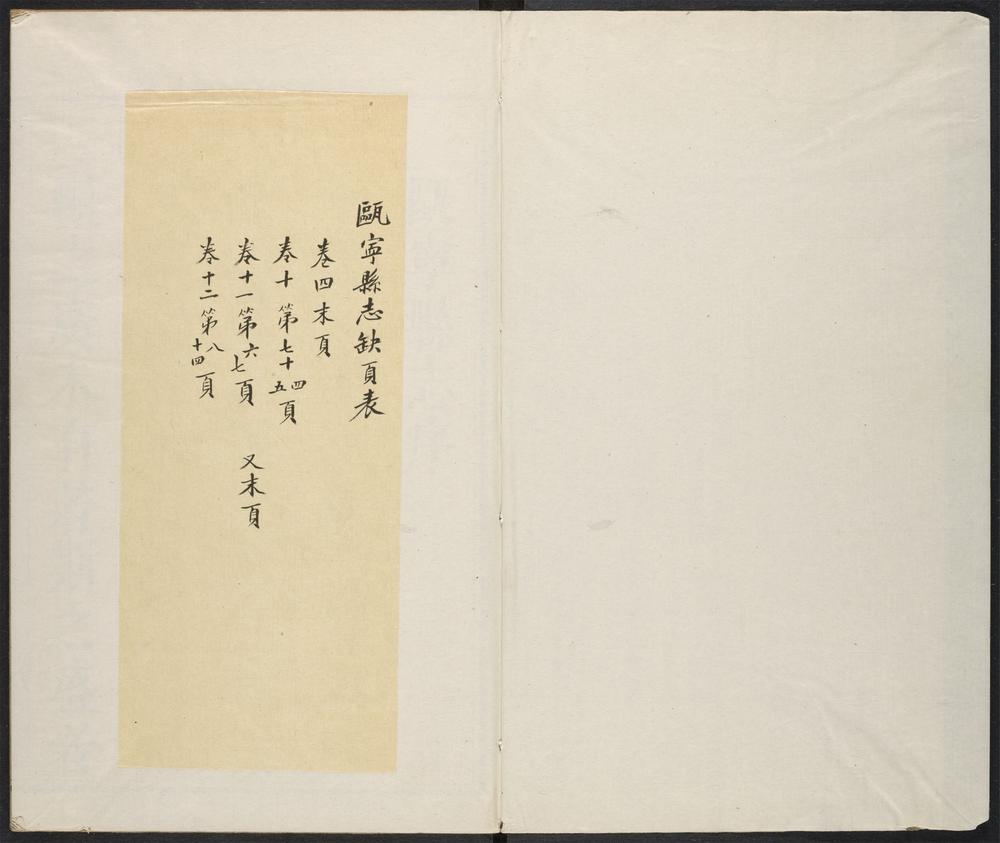 甌寧縣志缺頁表
卷四末頁
卷十 第七十四五頁
卷十一第六七頁 又末頁
卷十二第八十四頁